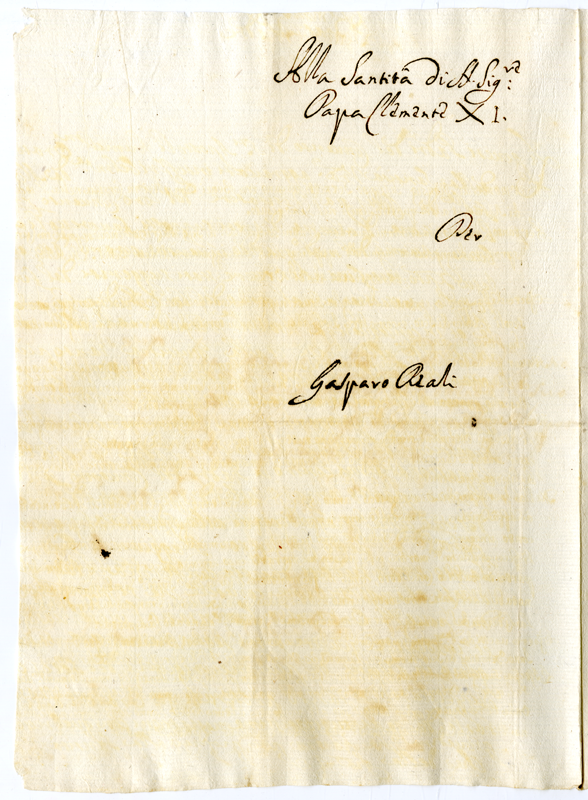 Alla Santità di N. Sig.re:
Papa Clemente XI.
Per
Gasparo Reali